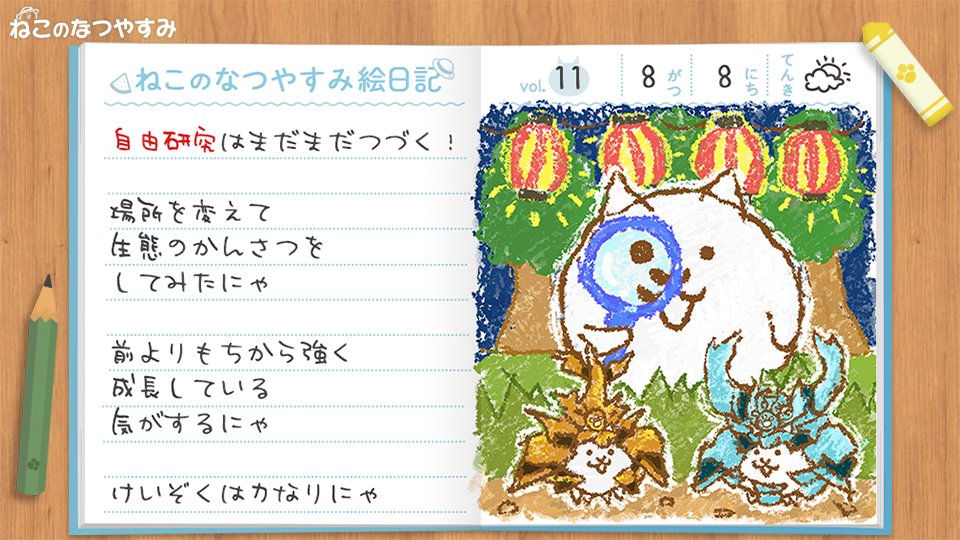 ねこのなつやすみ
ねこのなつやすみ絵日記
自由研究はまだまだつづく！
場所を変えて
生態のかんさつを
してみたにゃ
前よりもちから強く
成長している
気がするにゃ
けいぞくはカなりにゃ
vol. 11
8 がつ 8 にち てんき